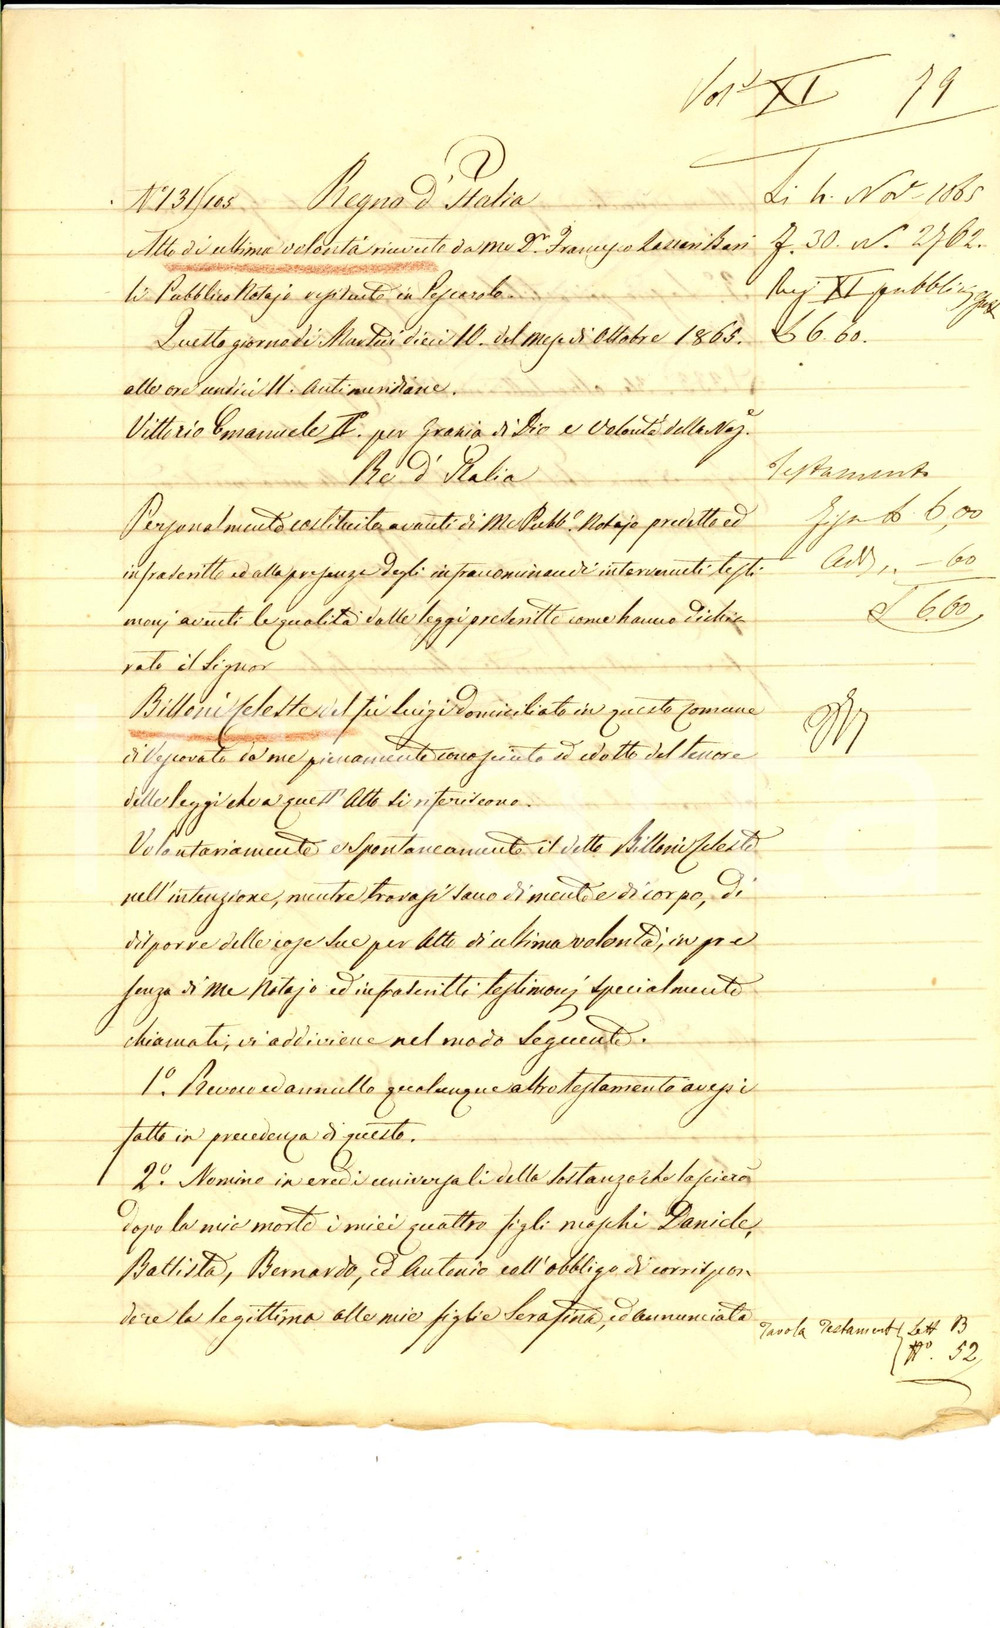 Vol. XI 79
N° 131/105 Regno d'Italia
Li 4. Nov. 1865
Atto di ultima volontà ricevuto da me Dr. Francesco
F. 30. N. 2762.
Pubblico Notajo residente in Pescarolo.
Reg XI pubblici
Questo giorno di Martedi dieci 10. del mese di Ottobre 1865.
£ 6. 60.
alle ore undici 11. Antimeridiane.
Vittorio Emanuele II°. per Grazia di Dio e Volontà della Naz.e
Re d'Italia
Testamento
Personalmente costituito avanti di Me Pubb.° Notajo predetto ed
Fissa £ 6,00
infrascritto ed alla presenza degli infranominandi intervenuti testi
Add. ,, – 60
monj aventi le qualità dalle leggi prescritte come hanno dichia
£ 6.60
rato il Signor
Billoni Celeste del fu Luigi domiciliato in questo Comune
di Vescovato da me pienamente conosciuto ed edotto del tenore
delle leggi che a quest'Atto si riferiscono.
Volontariamente e spontaneamente il detto Billoni Celeste
nell'intenzione, mentre trovasi sano di mente e di corpo, di
disporre delle cose sue per Atto di ultima volontà, in pre
senza di Me Notajo ed infrascritti testimonj specialmente
chiamati, vi addiviene nel modo seguente.
1°. Revoco ed annullo qualunque altro testamento avessi
fatto in precedenza di questo.
2°. Nomino in eredi universali della sostanza che lascierò
dopo la mia morte i miei quattro figli maschi Daniele,
Battista, Bernardo, ed Antonio coll'obbligo di corrispon
dere la legittima alle mie figlie Serafina, ed Annunciata
Tavola Testamenti Lett B
N°. 52